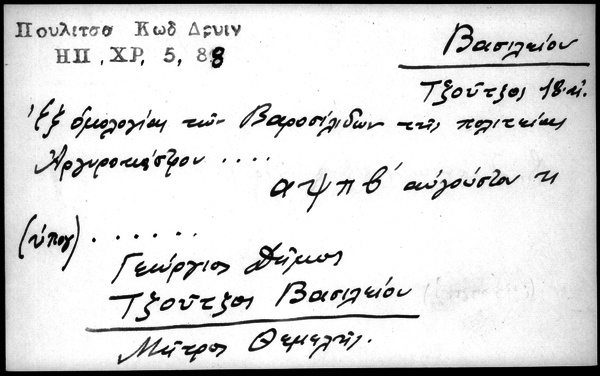 Πουλιτσα Κωδ Δρυιν
ΗΠ.ΧΡ, 5, 88
Βασιλείου
Τζούτζος 18.αι.
Ἐξ ὁμολογίας τῶν Βαροσιλίδων τῆς πολιτείας
Ἀργυροκάστρου ....
αψπβ' αὐγούστου κ
(ὑπογ) ......
Γεώργιος Δῆμος
Τζούτζος Βασιλείου
Μῆτρος Θεμελῆς.